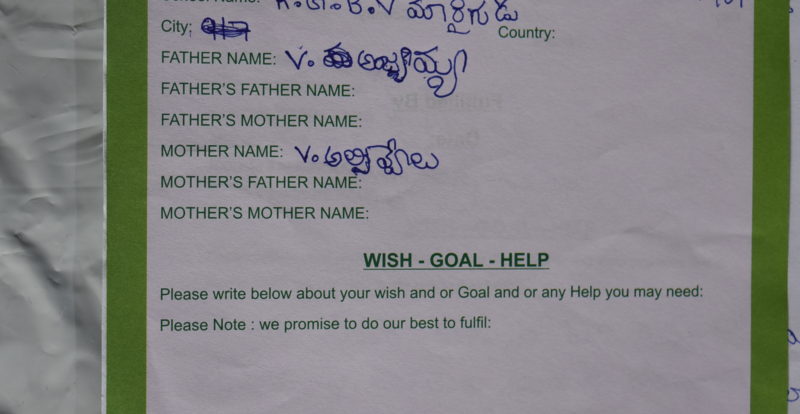 City: Country:
FATHER NAME: V.
FATHER'S FATHER NAME:
FATHER'S MOTHER NAME:
MOTHER NAME: V.
MOTHER'S FATHER NAME:
MOTHER'S MOTHER NAME:
WISH - GOAL - HELP
Please write below about your wish and or Goal and or any Help you may need:
Please Note : we promise to do our best to fulfil: